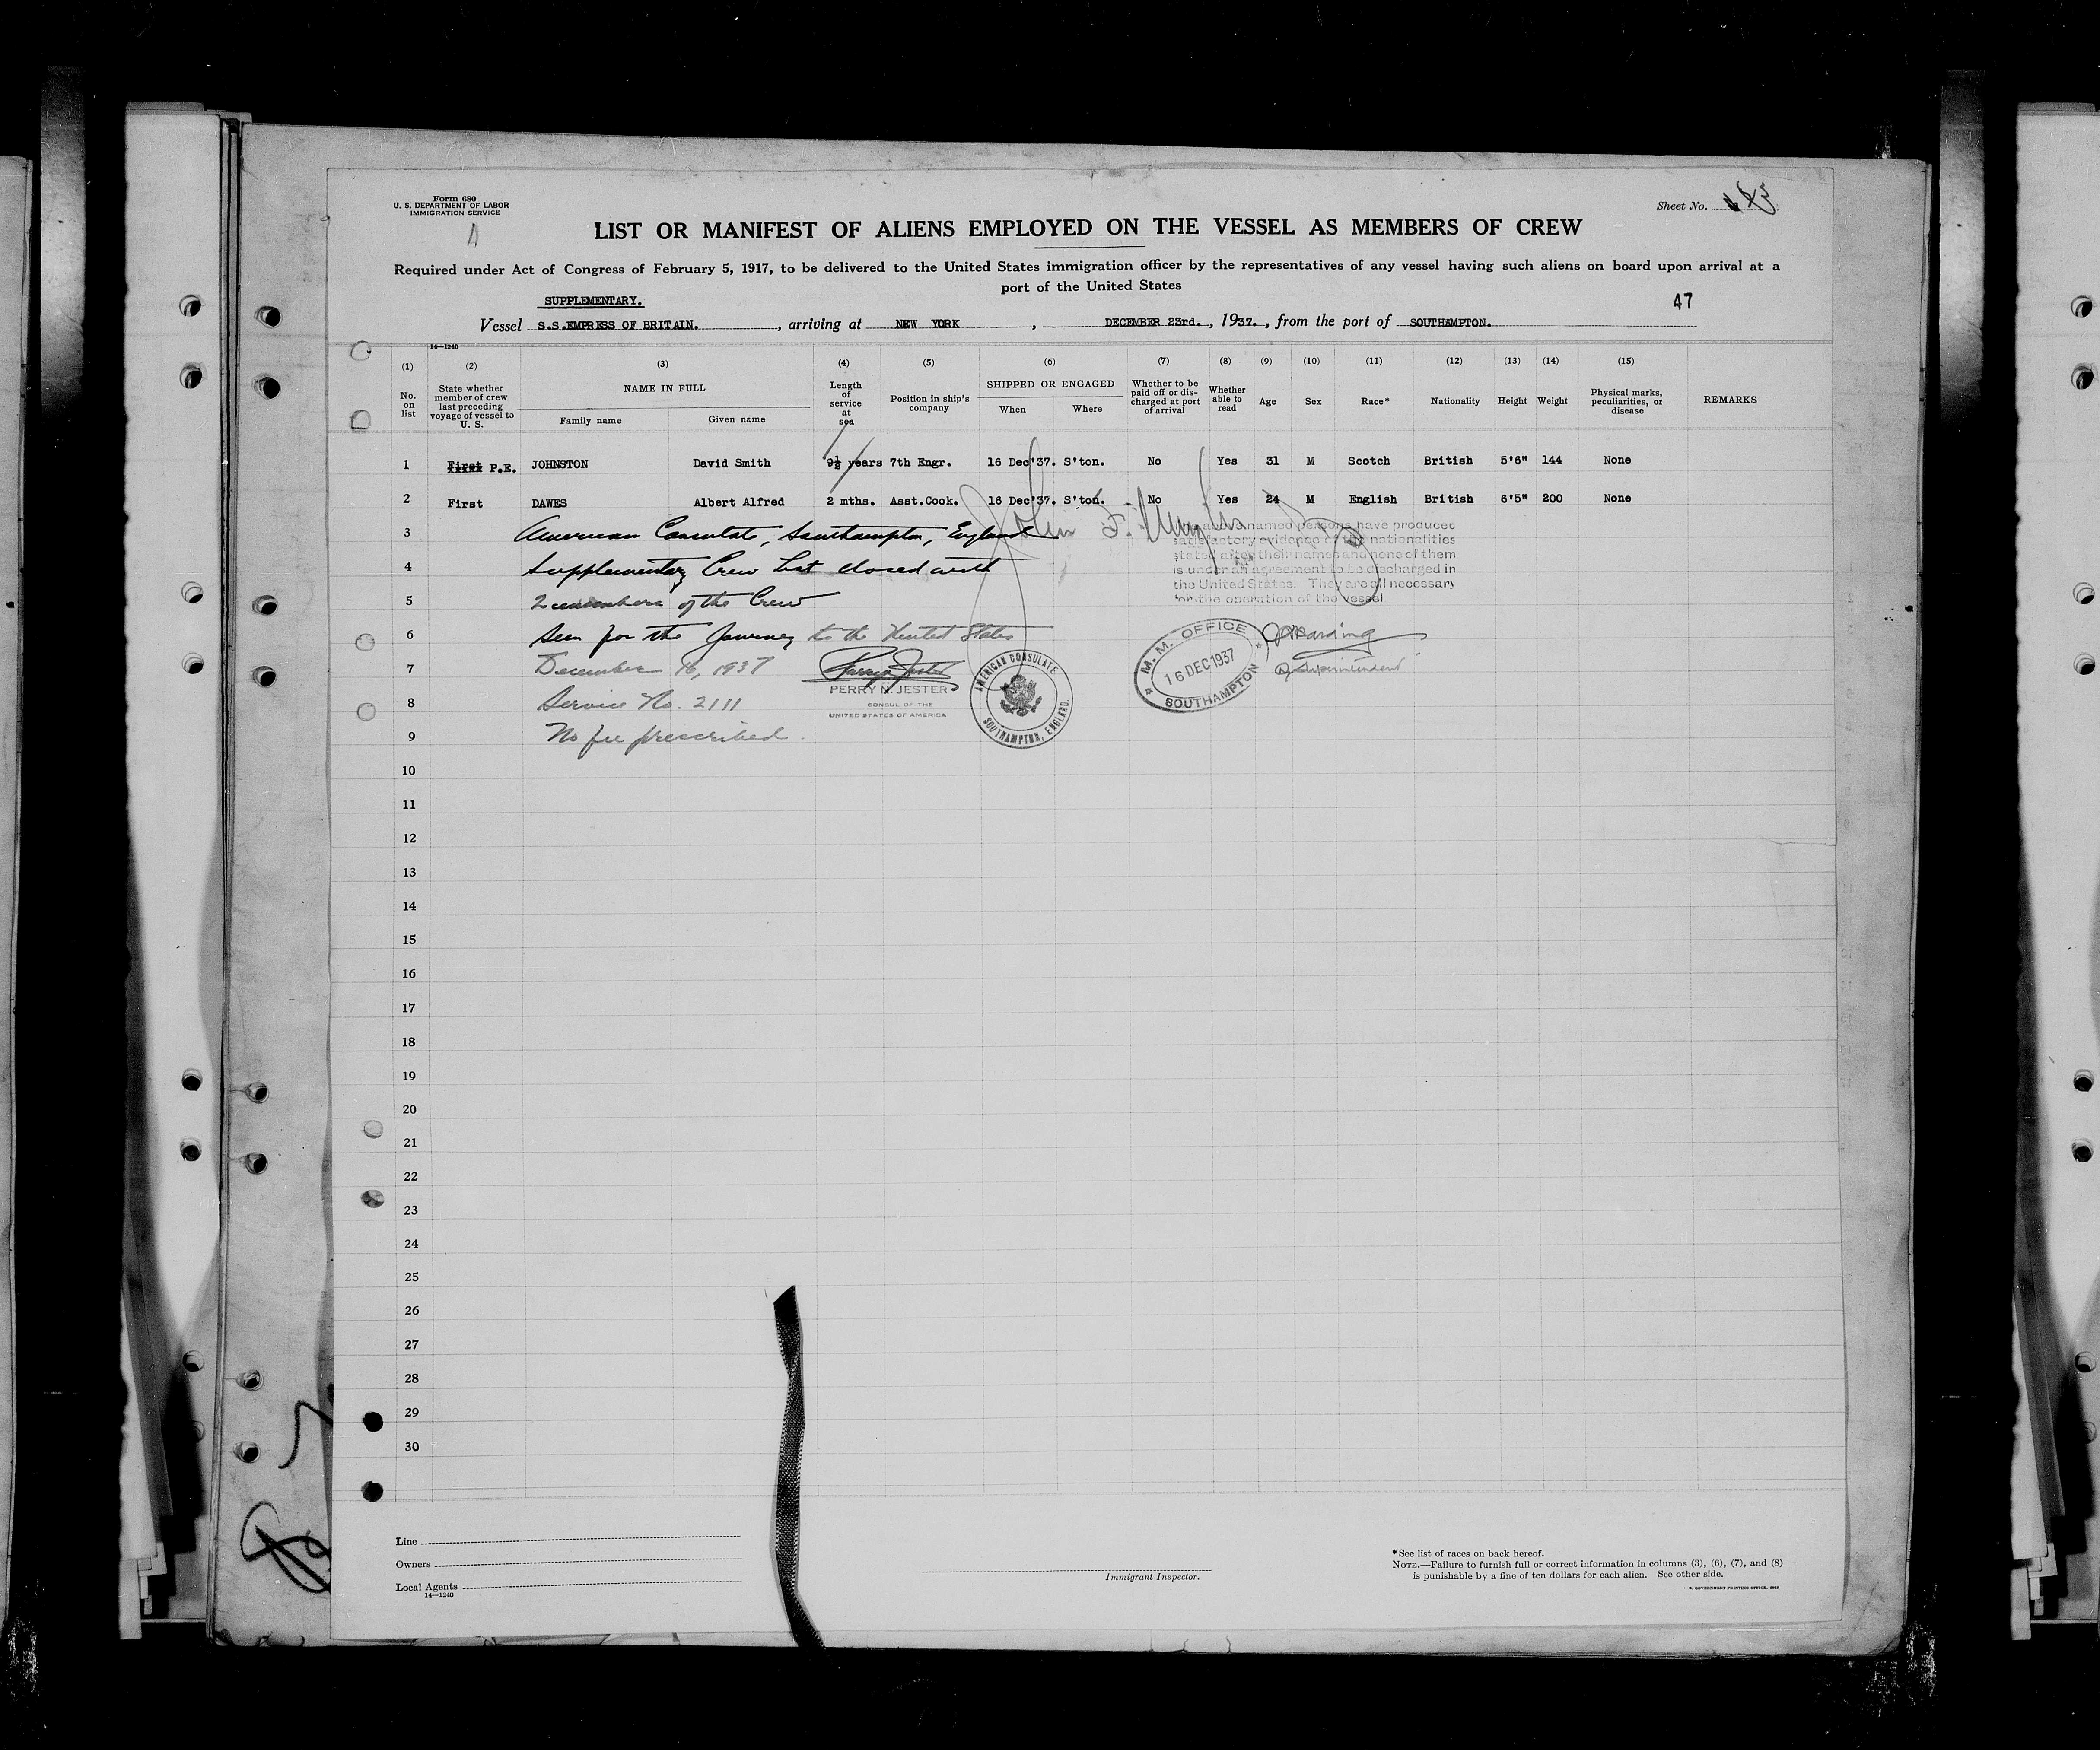 Form 680
U. S. DEPARTMENT OF LABOR
IMMIGRATION SERVICE
Sheet No.
LIST OR MANIFEST OF ALIENS EMPLOYED ON THE VESSEL AS MEMBERS OF CREW
Required under Act of Congress of February 5, 1917, to be delivered to the United States immigration officer by the representatives of any vessel having such aliens on board upon arrival at a
port of the United States
SUPPLEMENTARY.
47
Vessel S.S.EMPRESS OF BRITAIN. , arriving at NEW YORK , DECEMBER 23rd. , 1937. , from the port of SOUTHAMPTON.
14—1240
(1) (2) (3) (4) (5) (6) (7) (8) (9) (10) (11) (12) (13) (14) (15)
No. on list State whether member of crew last preceding voyage of vessel to U. S. NAME IN FULL Family name Given name Length of service at sea Position in ship's company SHIPPED OR ENGAGED When Where Whether to be paid off or discharged at port of arrival Whether able to read Age Sex Race* Nationality Height Weight Physical marks, peculiarities, or disease REMARKS
1 First P.E. JOHNSTON David Smith 9½ years 7th Engr. 16 Dec'37. S'ton. No Yes 31 M Scotch British 5'6" 144 None
2 First DAWES Albert Alfred 2 mths. Asst.Cook. 16 Dec'37. S'ton. No Yes 24 M English British 6'5" 200 None
3 American Consulate, Southampton, England
named persons have produced
satisfactory evidence of the nationalities
stated after their names and none of them
4 Supplementary Crew List closed with
is under an agreement to be discharged in
the United States. They are all necessary
5 2 members of the Crew
for the operation of the vessel
6 Seen for the Journey to the United States
7 December 16, 1937
PERRY N. JESTER
CONSUL OF THE
UNITED STATES OF AMERICA
AMERICAN CONSULATE
SOUTHAMPTON, ENGLAND.
M. M. OFFICE
16 DEC 1937
SOUTHAMPTON
Harding
Superintendent
8 Service No. 2111
9 No fee prescribed.
10
11
12
13
14
15
16
17
18
19
20
21
22
23
24
25
26
27
28
29
30
Line
Owners
Local Agents
14—1240
Immigrant Inspector.
*See list of races on back hereof.
NOTE.—Failure to furnish full or correct information in columns (3), (6), (7), and (8)
is punishable by a fine of ten dollars for each alien. See other side.
GOVERNMENT PRINTING OFFICE.